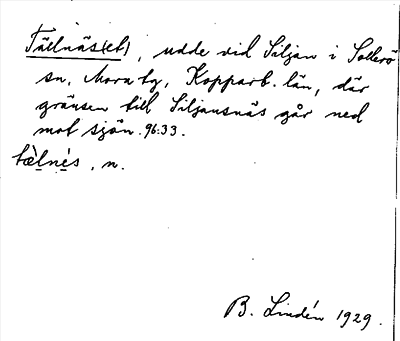 Tällnäs(et), udde vid Siljan i Sollerö
sn, Mora tg, Kopparb. län, där
gränsen till Siljansnäs går ned
mot sjön. 96:33.
tæ̀lnés, n.
B. Lindén 1929.